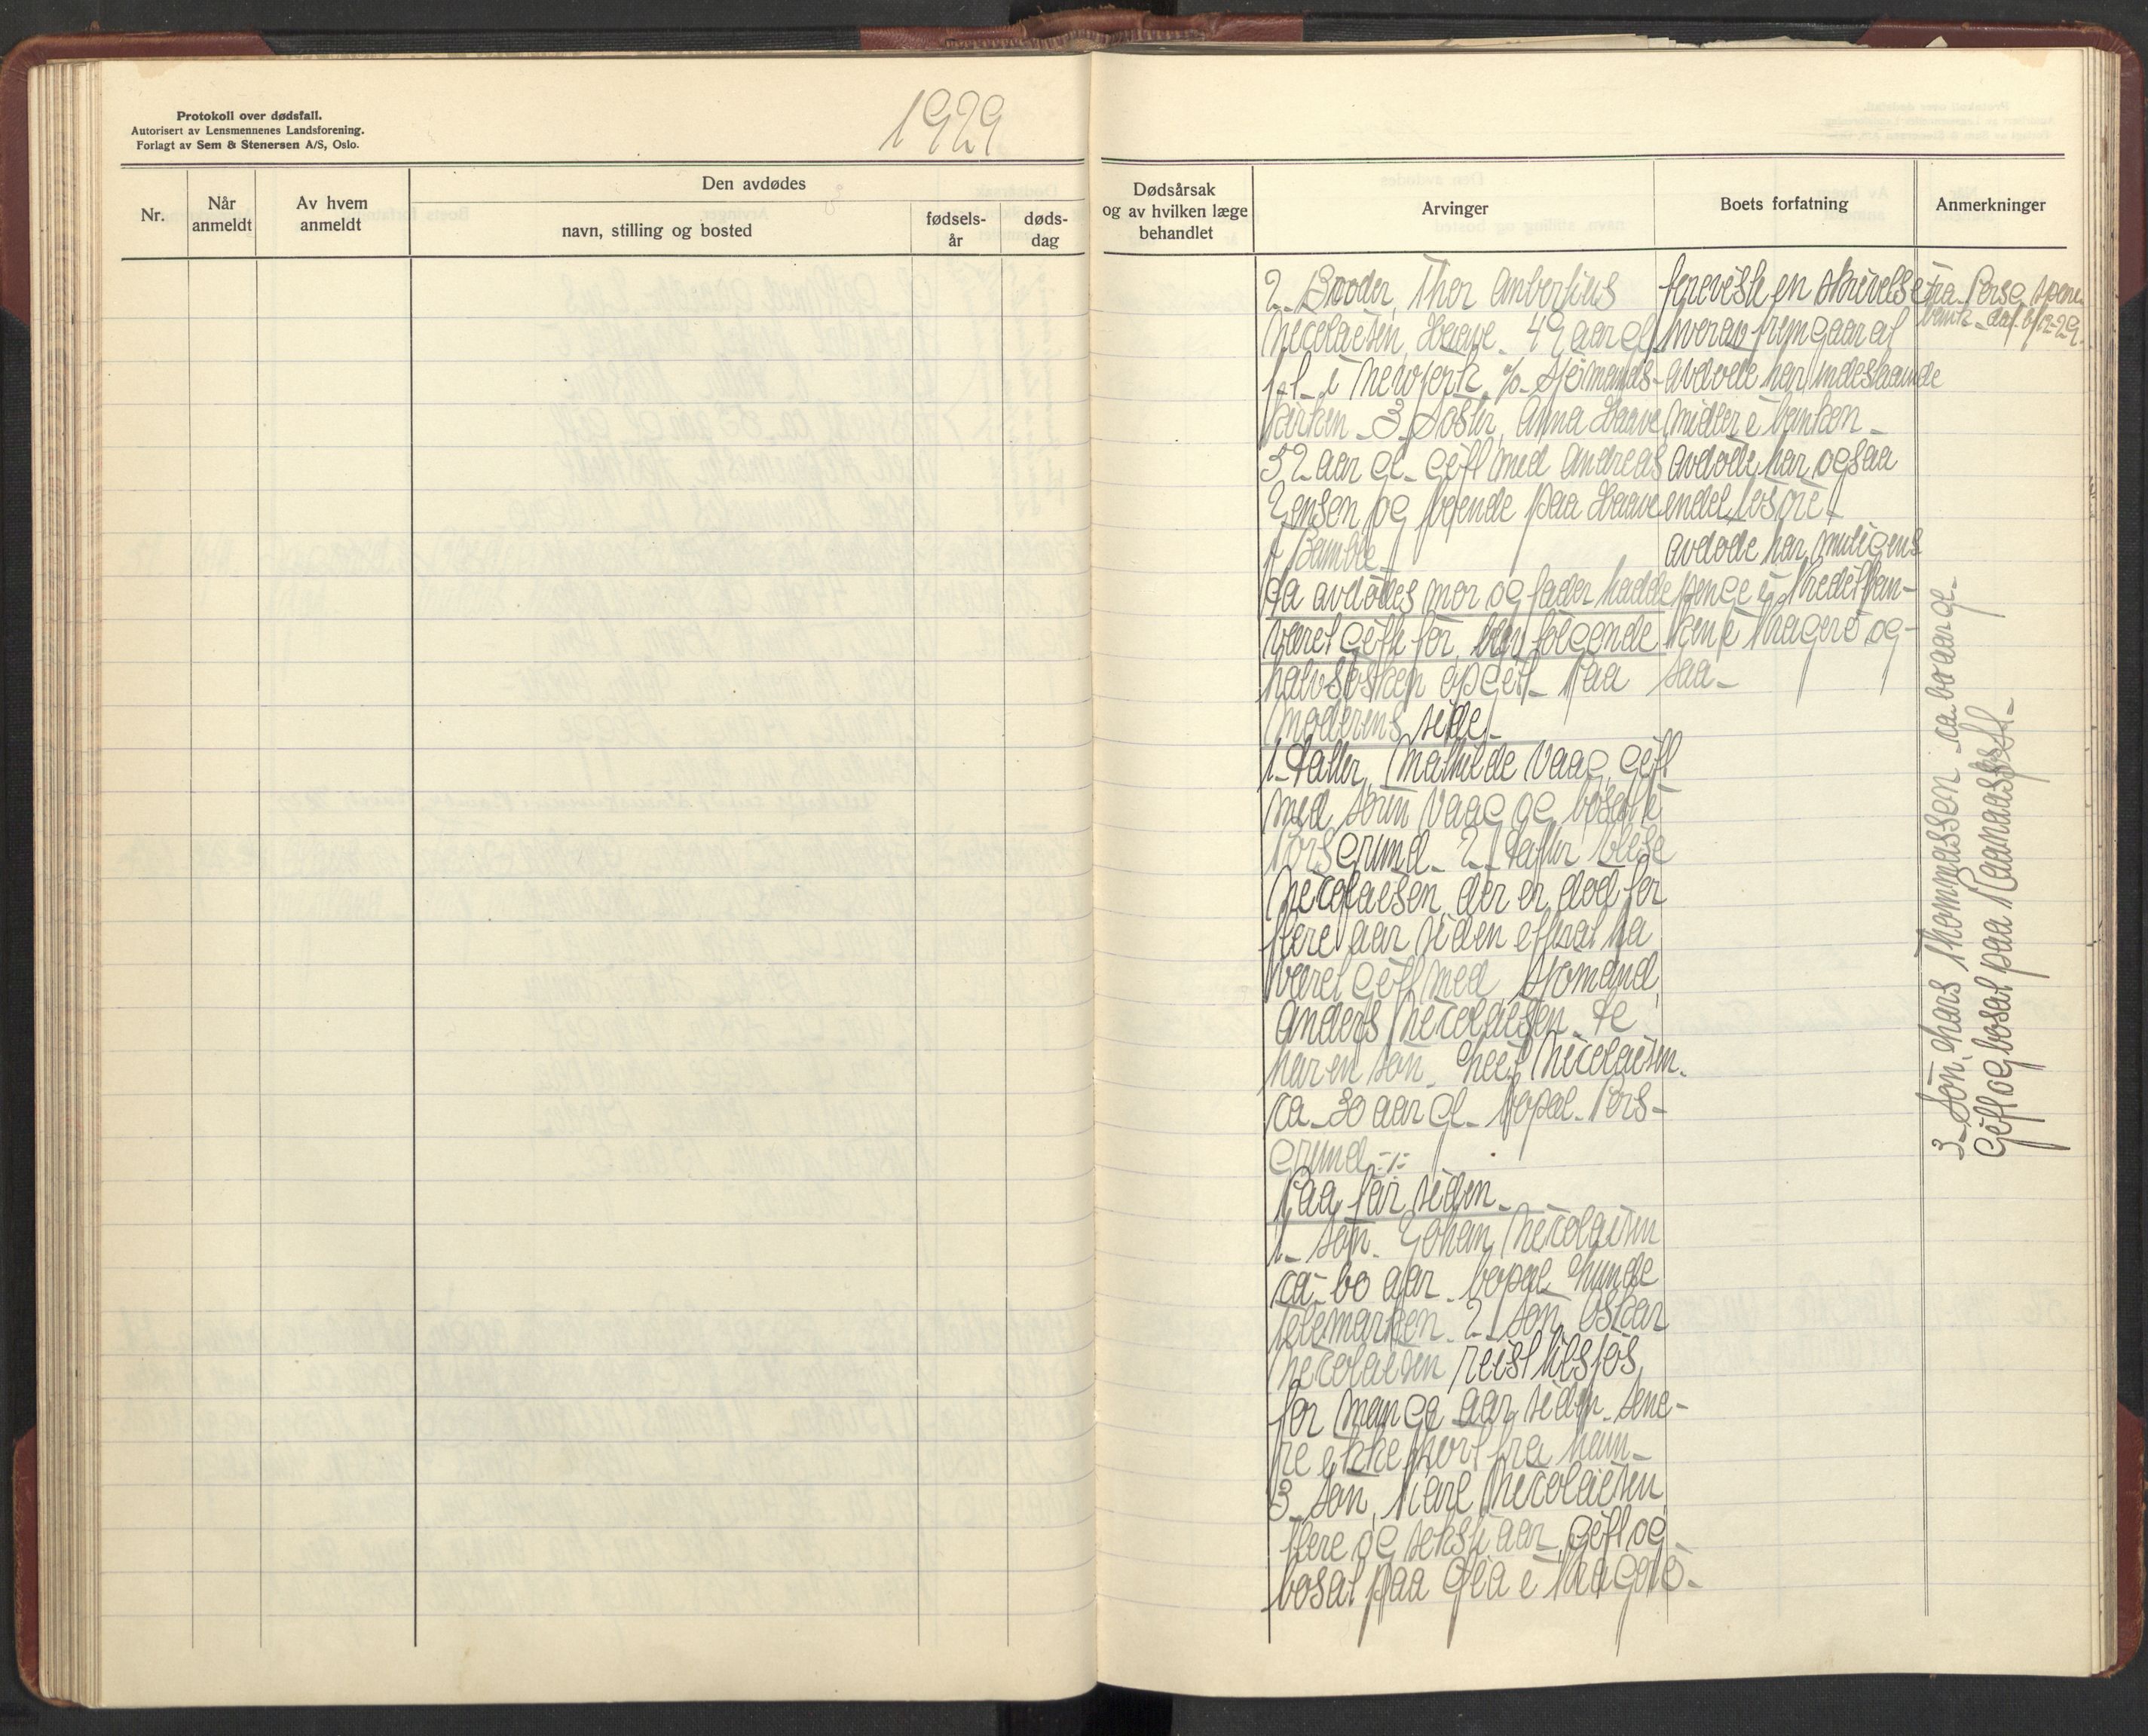 Protokoll over dødsfall.
Autorisert av Lensmennenes Landsforening.
Forlagt av Sem & Stenersen A/S, Oslo.
1929
Nr.
Når
anmeldt
Av hvem
anmeldt
Den avdødes
navn, stilling og bosted
fødsels-
år
døds-
dag
Dødsårsak
og av hvilken læge
behandlet
Arvinger
Boets forfatning
Anmerkninger
2. Broder, Thor
Nicolaisen, Haave. 49 aar gl.
f.t. i Newjork, % Sjømands-
kirken. 3. Søster, Anna Haave
52 aar gl. gift med Andreas
Jensen og boende paa Haave
i Bamble.
Da avdødes mor og fader hadde
været gift før, blev følgende
halvsøsken opgit. Paa
moderens side.
1. Datter, Mathilde Vaag, gift
med Vaag og bosat i
Porsgrund. 2. Datter
Nicolaisen, der er død for
flere aar siden efterat ha
været gift med sjømand
Anders Nicolaisen. De
har en søn. Nicolaisen.
ca. 30 aar gl. bopæl. Pors-
grund -:-
Paa far siden.
1. Søn. Johan Nicolaisen
ca. 60 aar. bopæl Lunde
Telemarken. 2. søn Oskar
Nicolaisen reist tilsjøs
for mange aar siden. sene-
re ikke hørt fra ham.
3. Søn, Karl Nicolaisen
flere og seksti aar, gift og
bosat paa i Kragerø.
foreviste en skrivelse
hverav fremgaar at
avdøde har indestaaende
midler i banken.
Avdøde har ogsaa
endel løsøre.
Avdøde har muligens
penge i Kreditban-
ken i Kragerø og-
saa.
fra Porsg. spare-
bank. dat. 6/12-29.
3. Søn, Hans Thommassen ca. 60 aar gl.
Gift og bosat paa